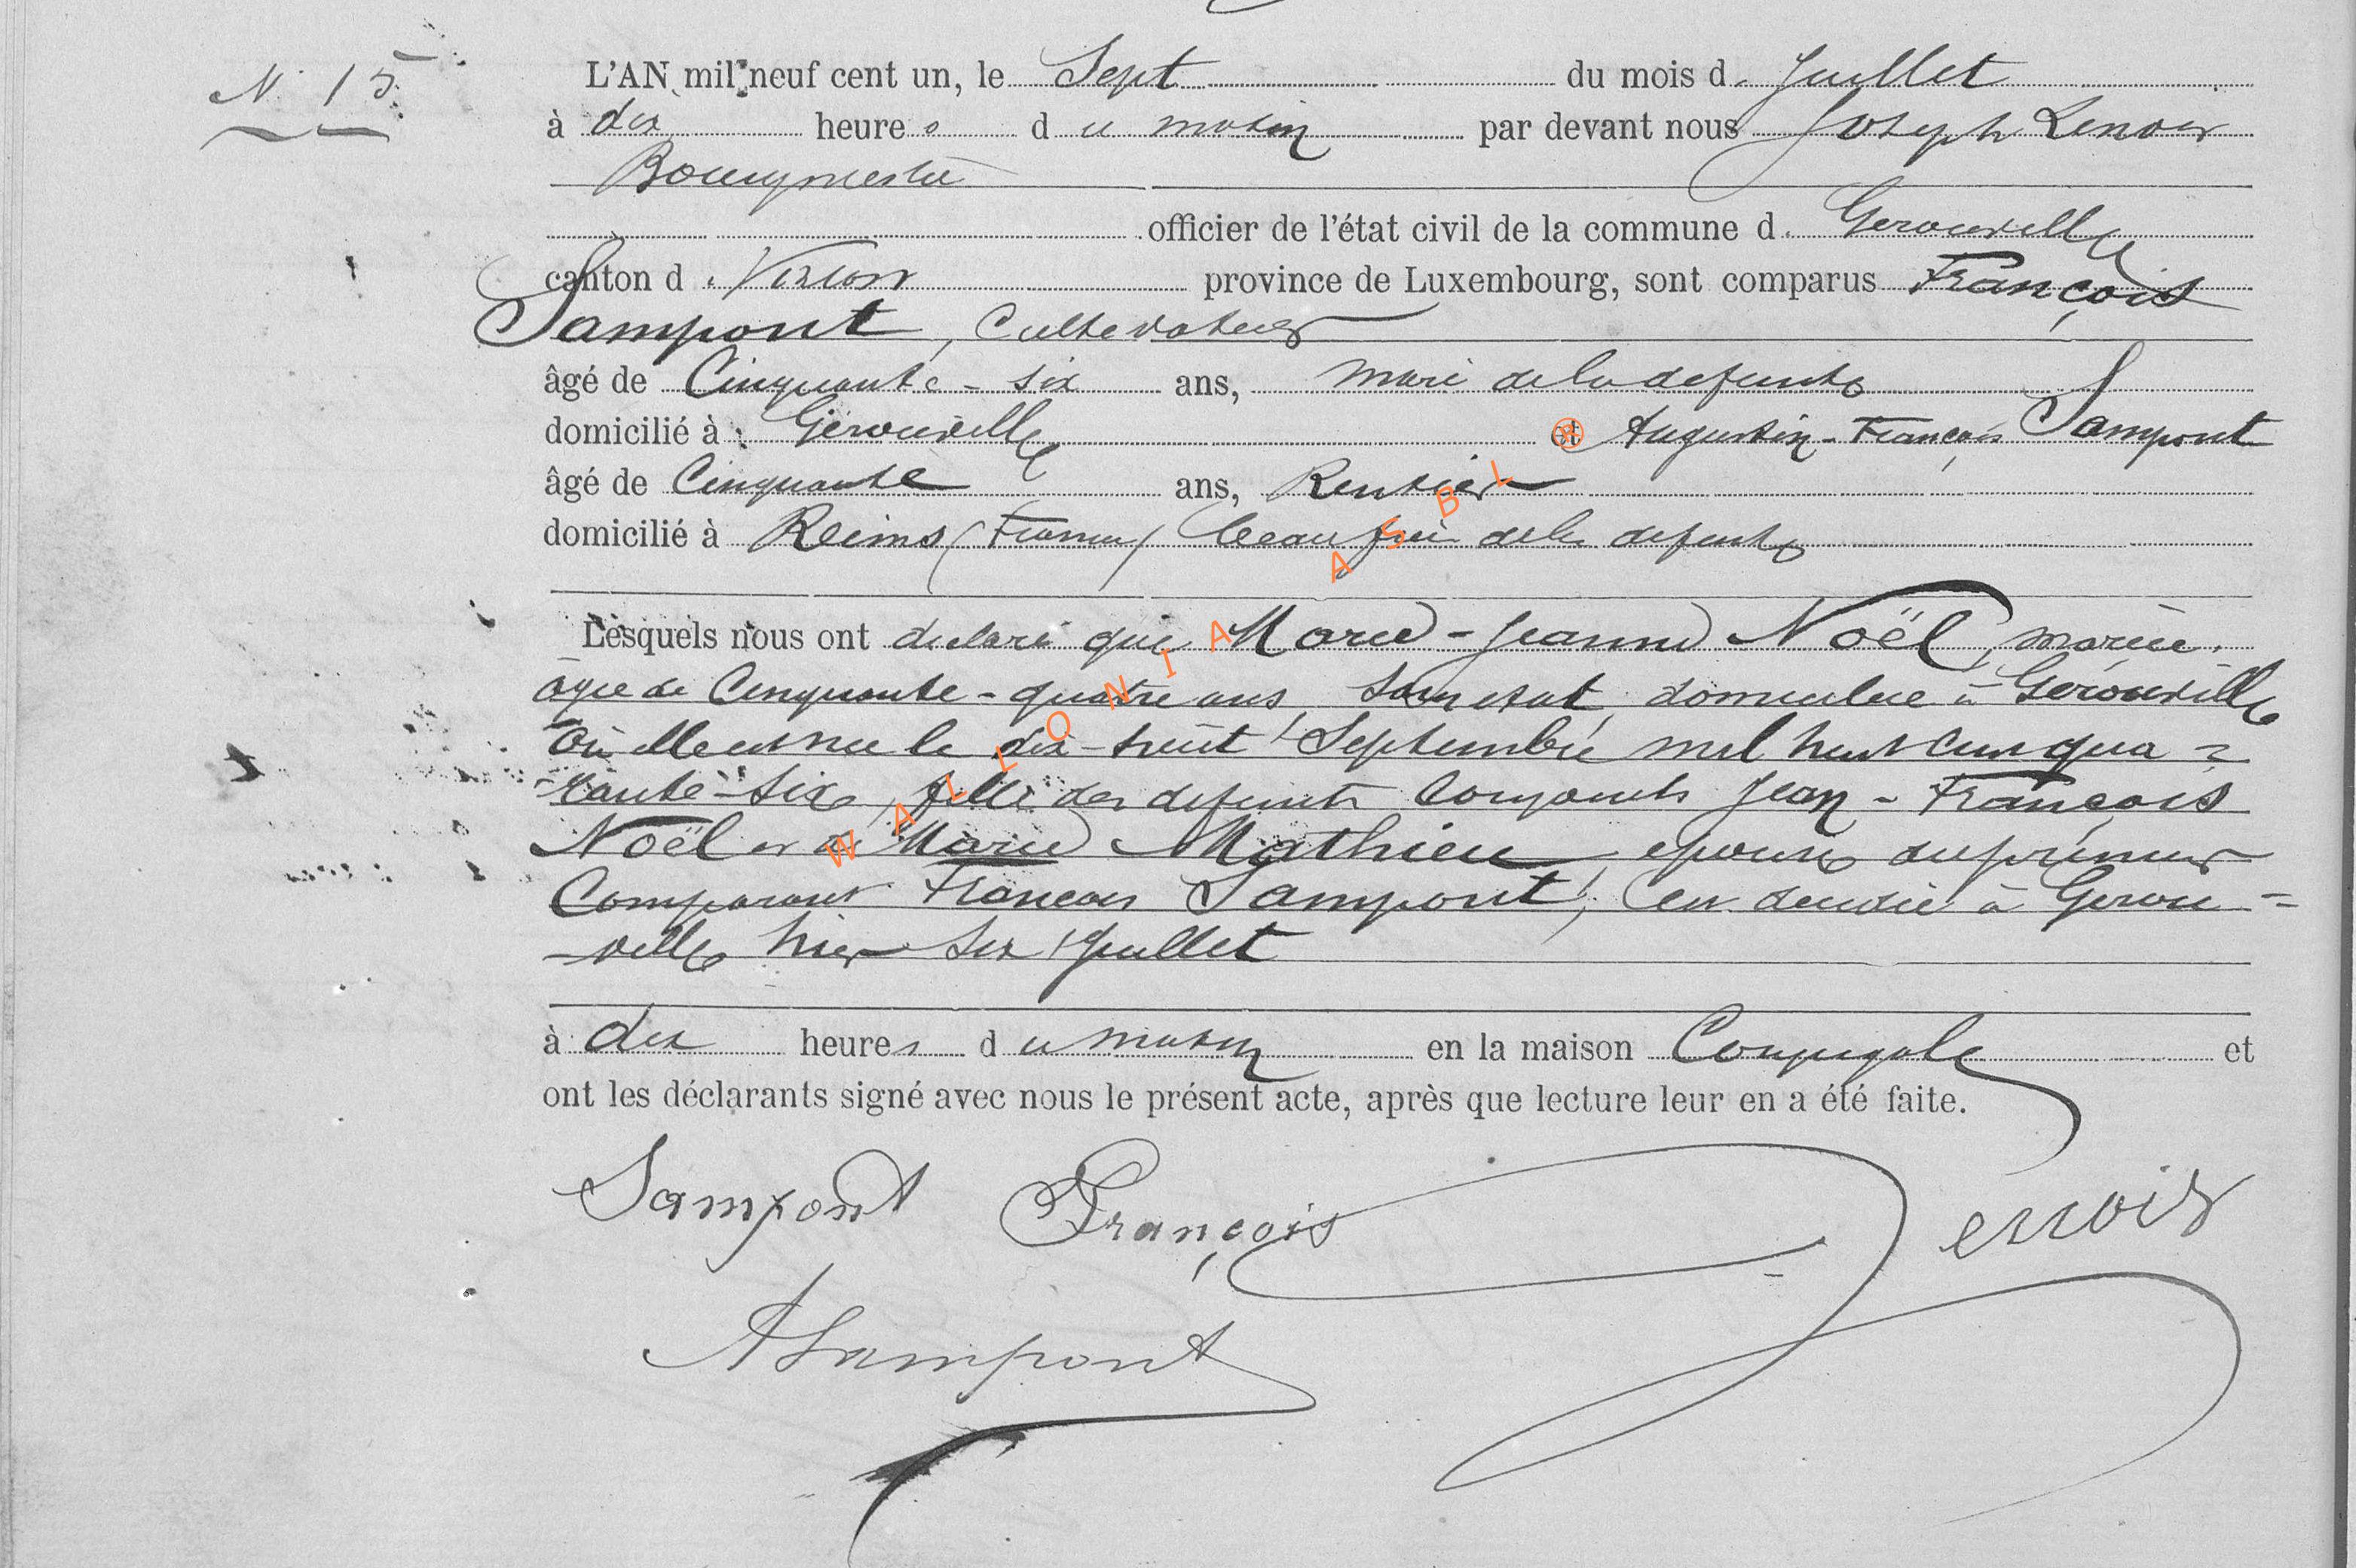 N. 15
L'AN mil neuf cent un, le Sept du mois d. Juillet
à dix heures du matin par devant nous Joseph Lenoir
Bourgmestre
officier de l'état civil de la commune d. Gérouville
canton d. Virton province de Luxembourg, sont comparus François
Sampont, Cultivateur
âgé de Cinquante-six ans, mari de la défunte
domicilié à Gérouville et Augustin-François Sampont
âgé de Cinquante ans, Rentier
domicilié à Reims (France) beau frère de la défunte
Lesquels nous ont déclaré que Marie-Jeanne Noël, mariée.
âgée de Cinquante-quatre ans, sans état, domiciliée à Gérouville
où elle est née le dix-huit Septembre mil huit cent qua=
=rante-six, fille des défunts conjoints Jean-François
Noël et de Marie Mathieu, épouse du premier
Comparant François Sampont, est décédée à Gérou=
-ville hier six Juillet
à dix heures du matin en la maison Conjugale et
ont les déclarants signé avec nous le présent acte, après que lecture leur en a été faite.
Sampont François Lenoir
ASampont
WALLONIA ASBL ®